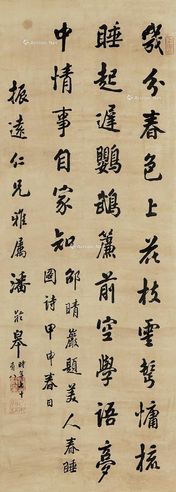 幾分春色上花枝雲鬢慵梳
睡起遲鸚鵡簾前空學語夢
中情事自家知
邵晴巖題美人春睡
圖詩甲申春日
振遠仁兄雅屬潘齡皋